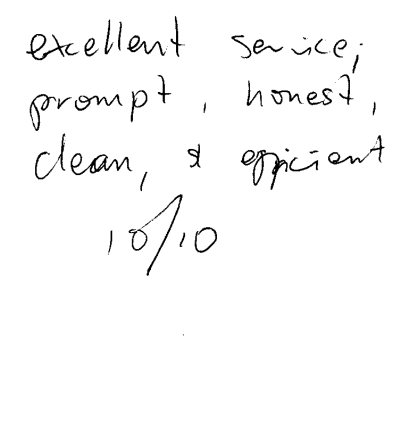 excellent service;
prompt, honest,
clean, & efficient
10/10